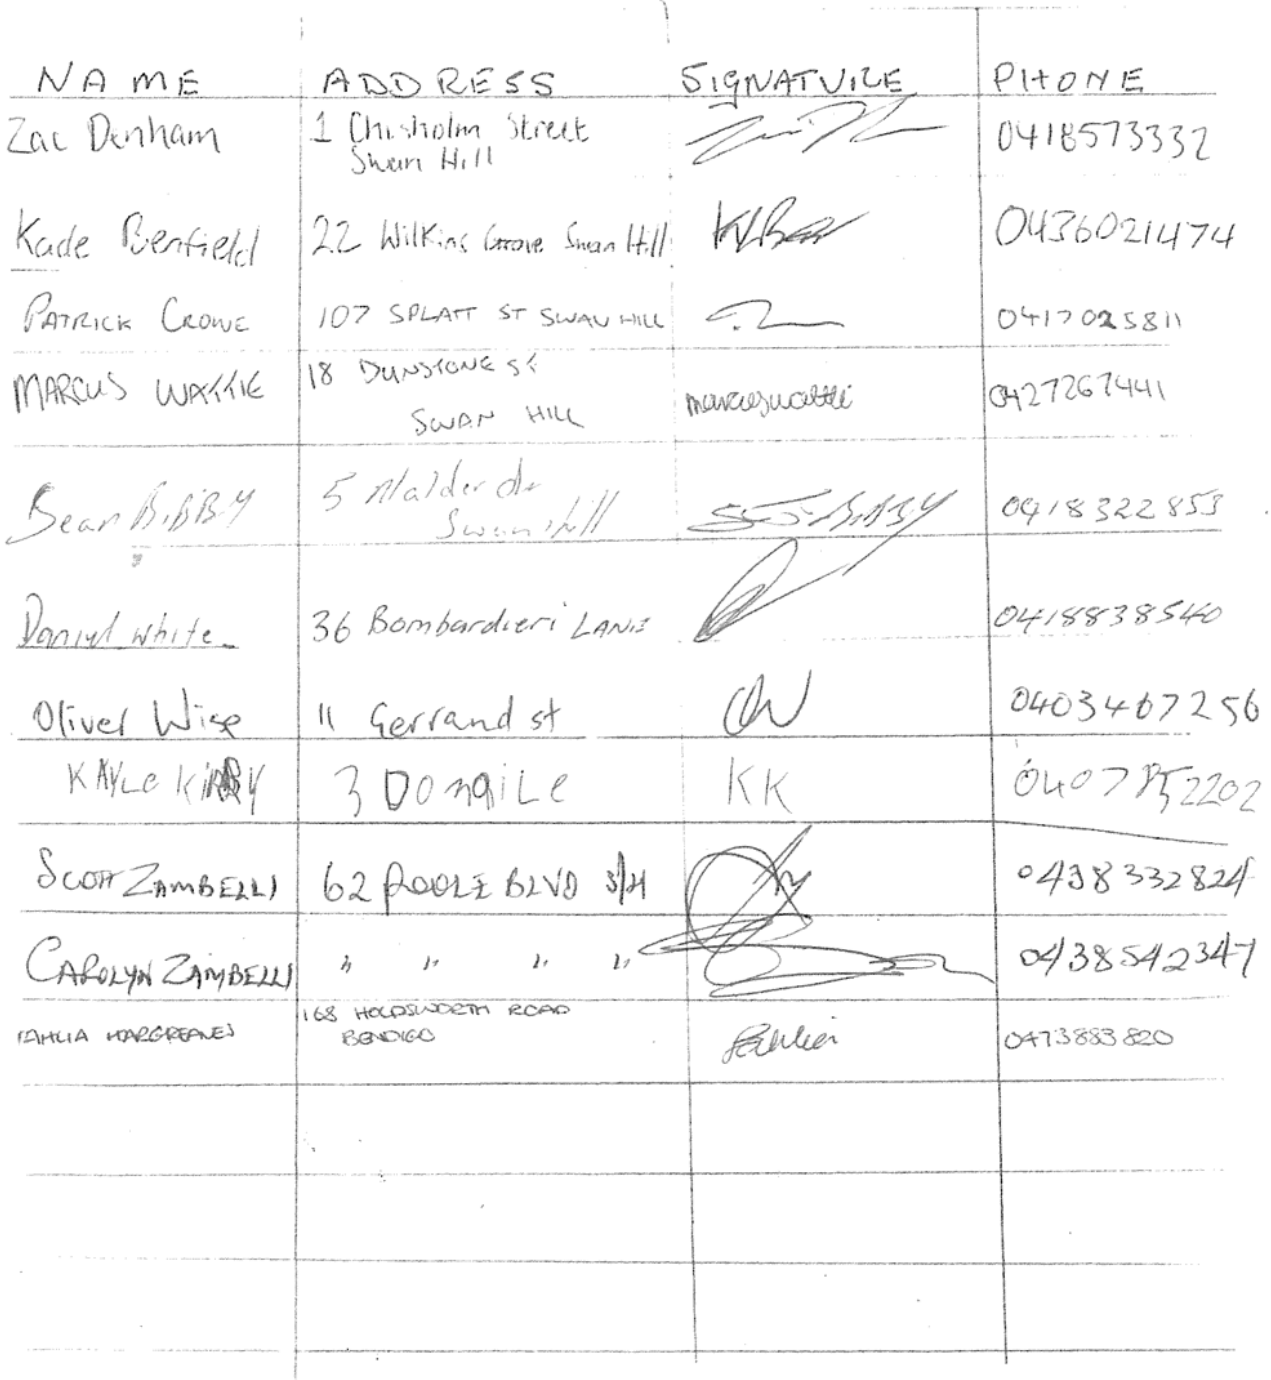 NAME ADDRESS SIGNATURE PHONE
Zac Denham 1 Chisholm Street 0418573332
Swan Hill
Kade Benfield 22 Wilkins Grove Swan Hill 0436021474
PATRICK CROWE 107 SPLATT ST SWAN HILL 0417025811
MARCUS WATTIE 18 DUNSTONE ST marcuswattie 0427267441
SWAN HILL
Sean BIBBY 5 Malder dr 0418322853
Swan Hill
Daniel white 36 Bombardieri LANE 0418838540
Oliver Wise 11 Gerrand st OW 0403467256
KAYLE KIRBY 3 KK
SCOTT ZAMBELLI 62 POOLE BLVD S/H 0438332824
CAROLYN ZAMBELLI " " " " 0438542347
TAHLIA HARGREAVES 168 HOLDSWORTH ROAD 0473883820
BENDIGO